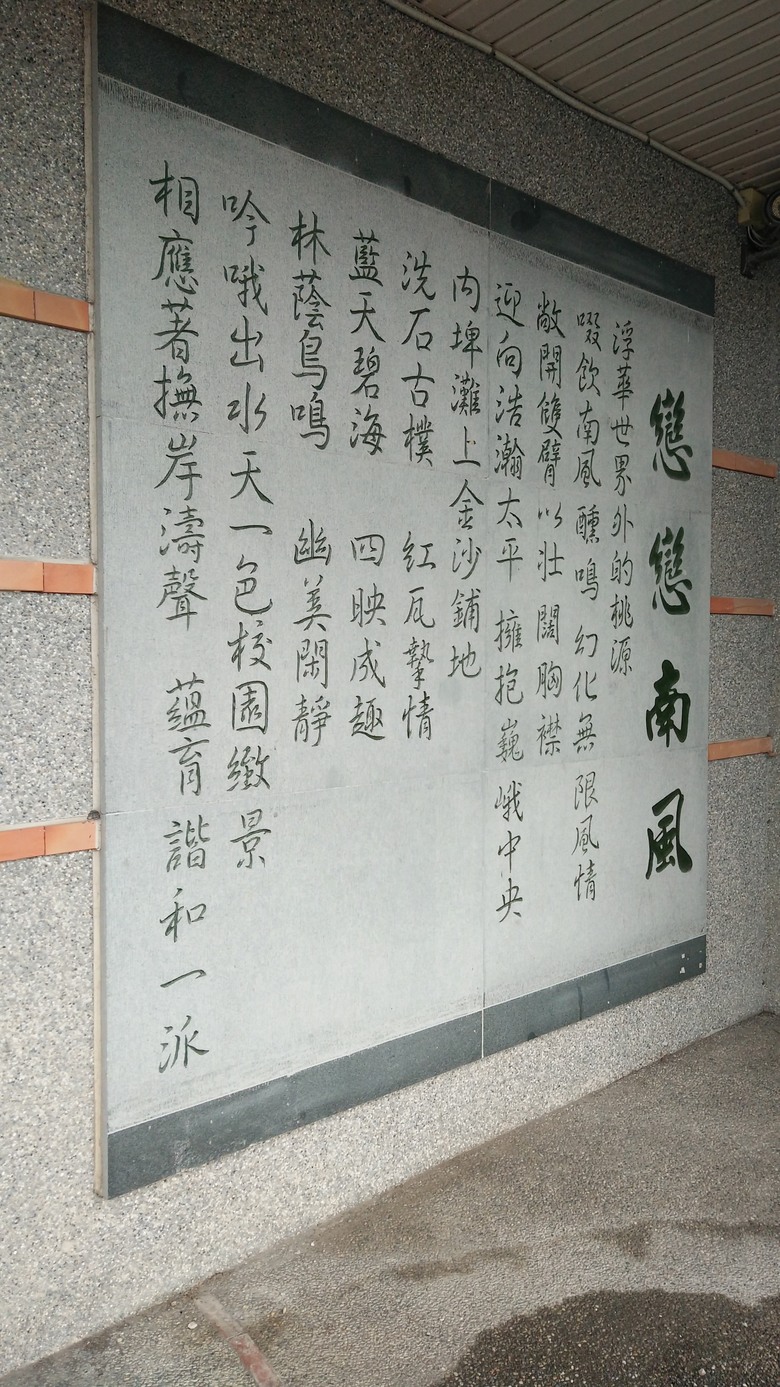 戀戀南風
浮華世界外的桃源
啜飲南風 醺鳴 幻化無限風情
敞開雙臂 以壯闊胸襟
迎向浩瀚太平 擁抱巍峨中央
內埤灘上金沙鋪地
洗石古樸 紅瓦摯情
藍天碧海 四映成趣
林蔭鳥鳴 幽美閑靜
吟哦出水天一色校園緻景
相應著撫岸濤聲 蘊育諧和一派